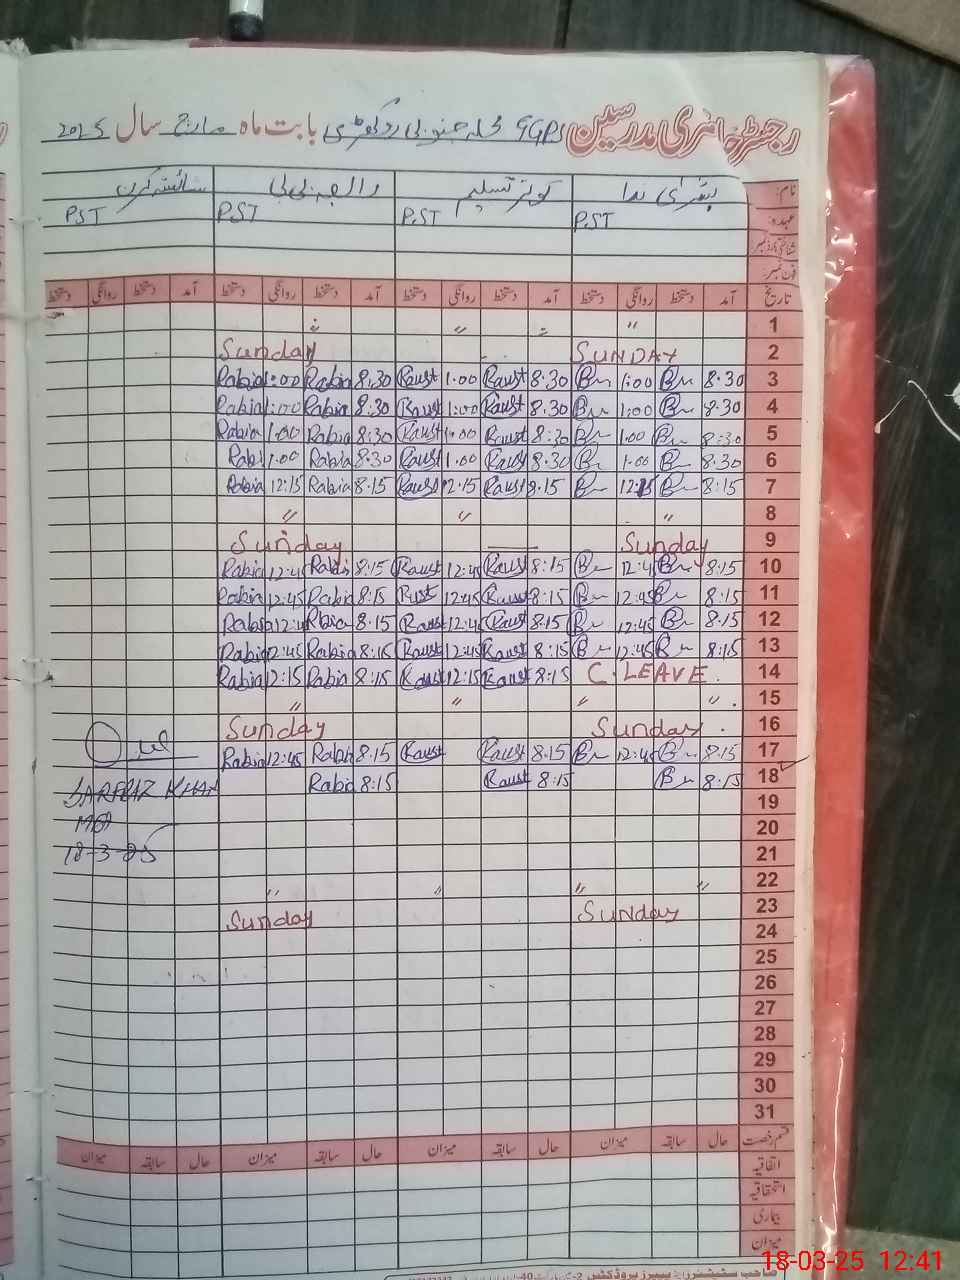 رجسٹر حاضری مدرسین GGPS محلہ جنوبی بابت ماہ مارچ سال 2025
نام: بشریٰ ندا کوثر تسلیم رابعہ بی بی شائستہ کرن
عہدہ PST P.ST PST PST
شناختی کارڈ نمبر
فون نمبر:
تاریخ آمد دستخط روانگی دستخط آمد دستخط روانگی دستخط آمد دستخط روانگی دستخط آمد دستخط روانگی دستخط
1 〃 〃 〃 〃
2 SUNDAY Sunday
3 8:30 1:00 8:30 Kaust 1:00 Kaust 8:30 Rabia 1:00 Rabia
4 8:30 1:00 8:30 Kaust 1:00 Kaust 8:30 Rabia 1:00 Rabia
5 8:30 1:00 8:30 Kaust 1:00 Kaust 8:30 Rabia 1:00 Rabia
6 8:30 1:00 8:30 Kaust 1:00 Kaust 8:30 Rabia 1:00 Rabi
7 8:15 12:15 8:15 Kaust 12:15 Kaust 8:15 Rabia 12:15 Rabia
8 〃 〃 〃
9 Sunday Sunday
10 8:15 12:45 8:15 Kaust 12:45 Kaust 8:15 Rabia 12:45 Rabia
11 8:15 12:45 8:15 Kaust 12:45 8:15 Rabia 12:45 Rabia
12 8:15 12:45 8:15 Kaust 12:45 Kaust 8:15 Rabia 12:45 Rabia
13 8:15 12:45 8:15 Kaust 12:45 Kaust 8:15 Rabia 12:45 Rabia
14 C.LEAVE. 8:15 Kaust 12:15 Kaust 8:15 Rabia 12:15 Rabia
15 〃 〃 〃 〃
16 Sunday. Sunday
17 8:15 12:45 8:15 Kaust Kaust 8:15 Rabia 12:45 Rabia
18 8:15 8:15 Kaust 8:15 Rabia
SARFRAZ KHAN
18-3-25
19
20
21
22 〃 〃 〃 〃
23 Sunday Sunday
24
25
26
27
28
29
30
31
قسم رخصت حال سابقہ میزان حال سابقہ میزان حال سابقہ میزان حال سابقہ میزان
اتفاقیہ
استحقاقیہ
بیماری
میزان
18-03-25 12:41